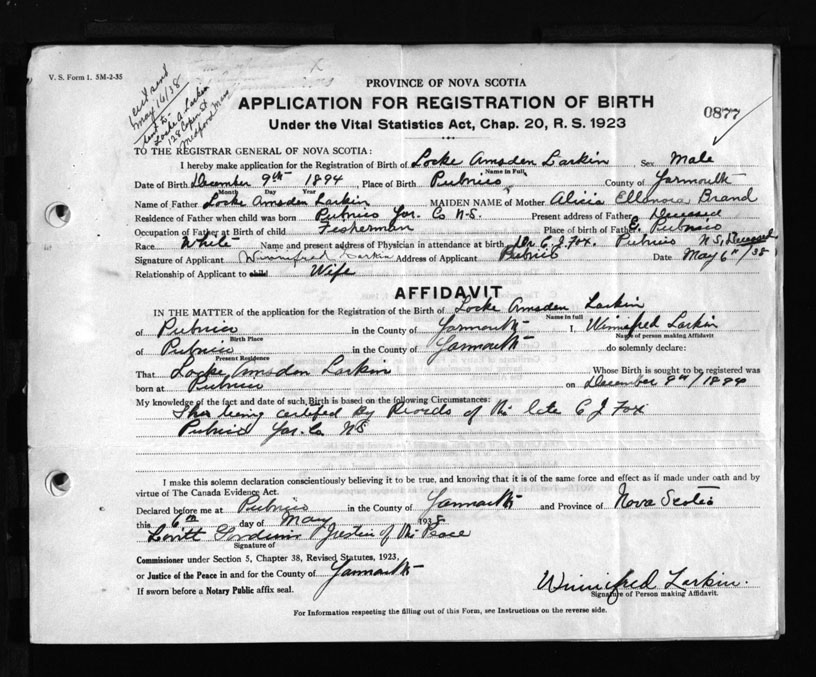 V. S. Form 1. 5M-2-35
May 16/38
sent to
Locke A. Larkin
Medford Mass
PROVINCE OF NOVA SCOTIA
APPLICATION FOR REGISTRATION OF BIRTH
0877
Under the Vital Statistics Act, Chap. 20, R. S. 1923
TO THE REGISTRAR GENERAL OF NOVA SCOTIA:
I hereby make application for the Registration of Birth of Locke Amsden Larkin Sex Male
Name in Full
Date of Birth December 9th 1894, Place of Birth Pubnico, County of Yarmouth
Month Day Year
Name of Father Locke Amsden Larkin MAIDEN NAME of Mother Alicia Ellonora Brand
Residence of Father when child was born Pubnico Yar. Co N-S. Present address of Father Deceased
Occupation of Father at Birth of child Fisherman Place of birth of Father E. Pubnico
Race White Name and present address of Physician in attendance at birth Dr C. J. Fox. Pubnico N.S, Deceased
Signature of Applicant Winnifred Larkin Address of Applicant Pubnico Date May 6th/38
Relationship of Applicant to child Wife
AFFIDAVIT
IN THE MATTER of the application for the Registration of the Birth of Locke Amsden Larkin
Name in full
of Pubnico in the County of Yarmouth I. Winnifred Larkin
Birth Place Name of person making Affidavit
of Pubnico in the County of Yarmouth do solemnly declare:
Present Residence
That Locke Amsden Larkin Whose Birth is sought to be registered was
born at Pubnico on December 9th/1894
My knowledge of the fact and date of such Birth is based on the following Circumstances:
being certified By Records of the late C J Fox
Pubnico Yar. Co N S
I make this solemn declaration conscientiously believing it to be true, and knowing that it is of the same force and effect as if made under oath and by
virtue of The Canada Evidence Act.
Declared before me at Pubnico in the County of Yarmouth and Province of Nova Scotia
this 6th day of May 1938
Lovitt Justice of the Peace
Signature of
Commissioner under Section 5, Chapter 38, Revised Statutes, 1923,
or Justice of the Peace in and for the County of Yarmouth
If sworn before a Notary Public affix seal.
Winnifred Larkin.
Signature of Person making Affidavit.
For Information respecting the filling out of this Form, see Instructions on the reverse side.